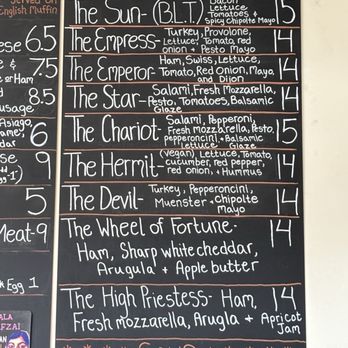 Served on
English Muffin
ese 6.5
e & 7.5
e or Ham
d 8.5
usage
Asiago,
ame, 6
dar
se 9
gg 1)
5
Meat-9
k Egg 1
ALA
FZAI
AN
The Sun- (B.L.T.) Bacon 15
Lettuce
Tomatoes &
Spicy Chipotle Mayo
The Empress- Turkey, Provolone, 14
Lettuce, Tomato, red
onion + Pesto Mayo
The Emperor- Ham, Swiss, Lettuce, 14
Tomato, Red Onion, Mayo
and Dijon
The Star- Salami, Fresh Mozzarella, 14
Pesto, Tomatoes, Balsamic
Glaze
The Chariot- Salami, Pepperoni, 15
Fresh mozzarella, Pesto,
pepperoncini + Balsamic
Lettuce Glaze
The Hermit- (vegan) Lettuce, Tomato, 14
cucumber, red pepper,
red onion, + Hummus
The Devil- Turkey, Pepperoncini, 14
Muenster + chipotle
Mayo
The Wheel of Fortune- 14
Ham, Sharp white cheddar,
Arugula + Apple butter
The High Priestess- Ham, 14
Fresh mozzarella, Arugla + Apricot
Jam